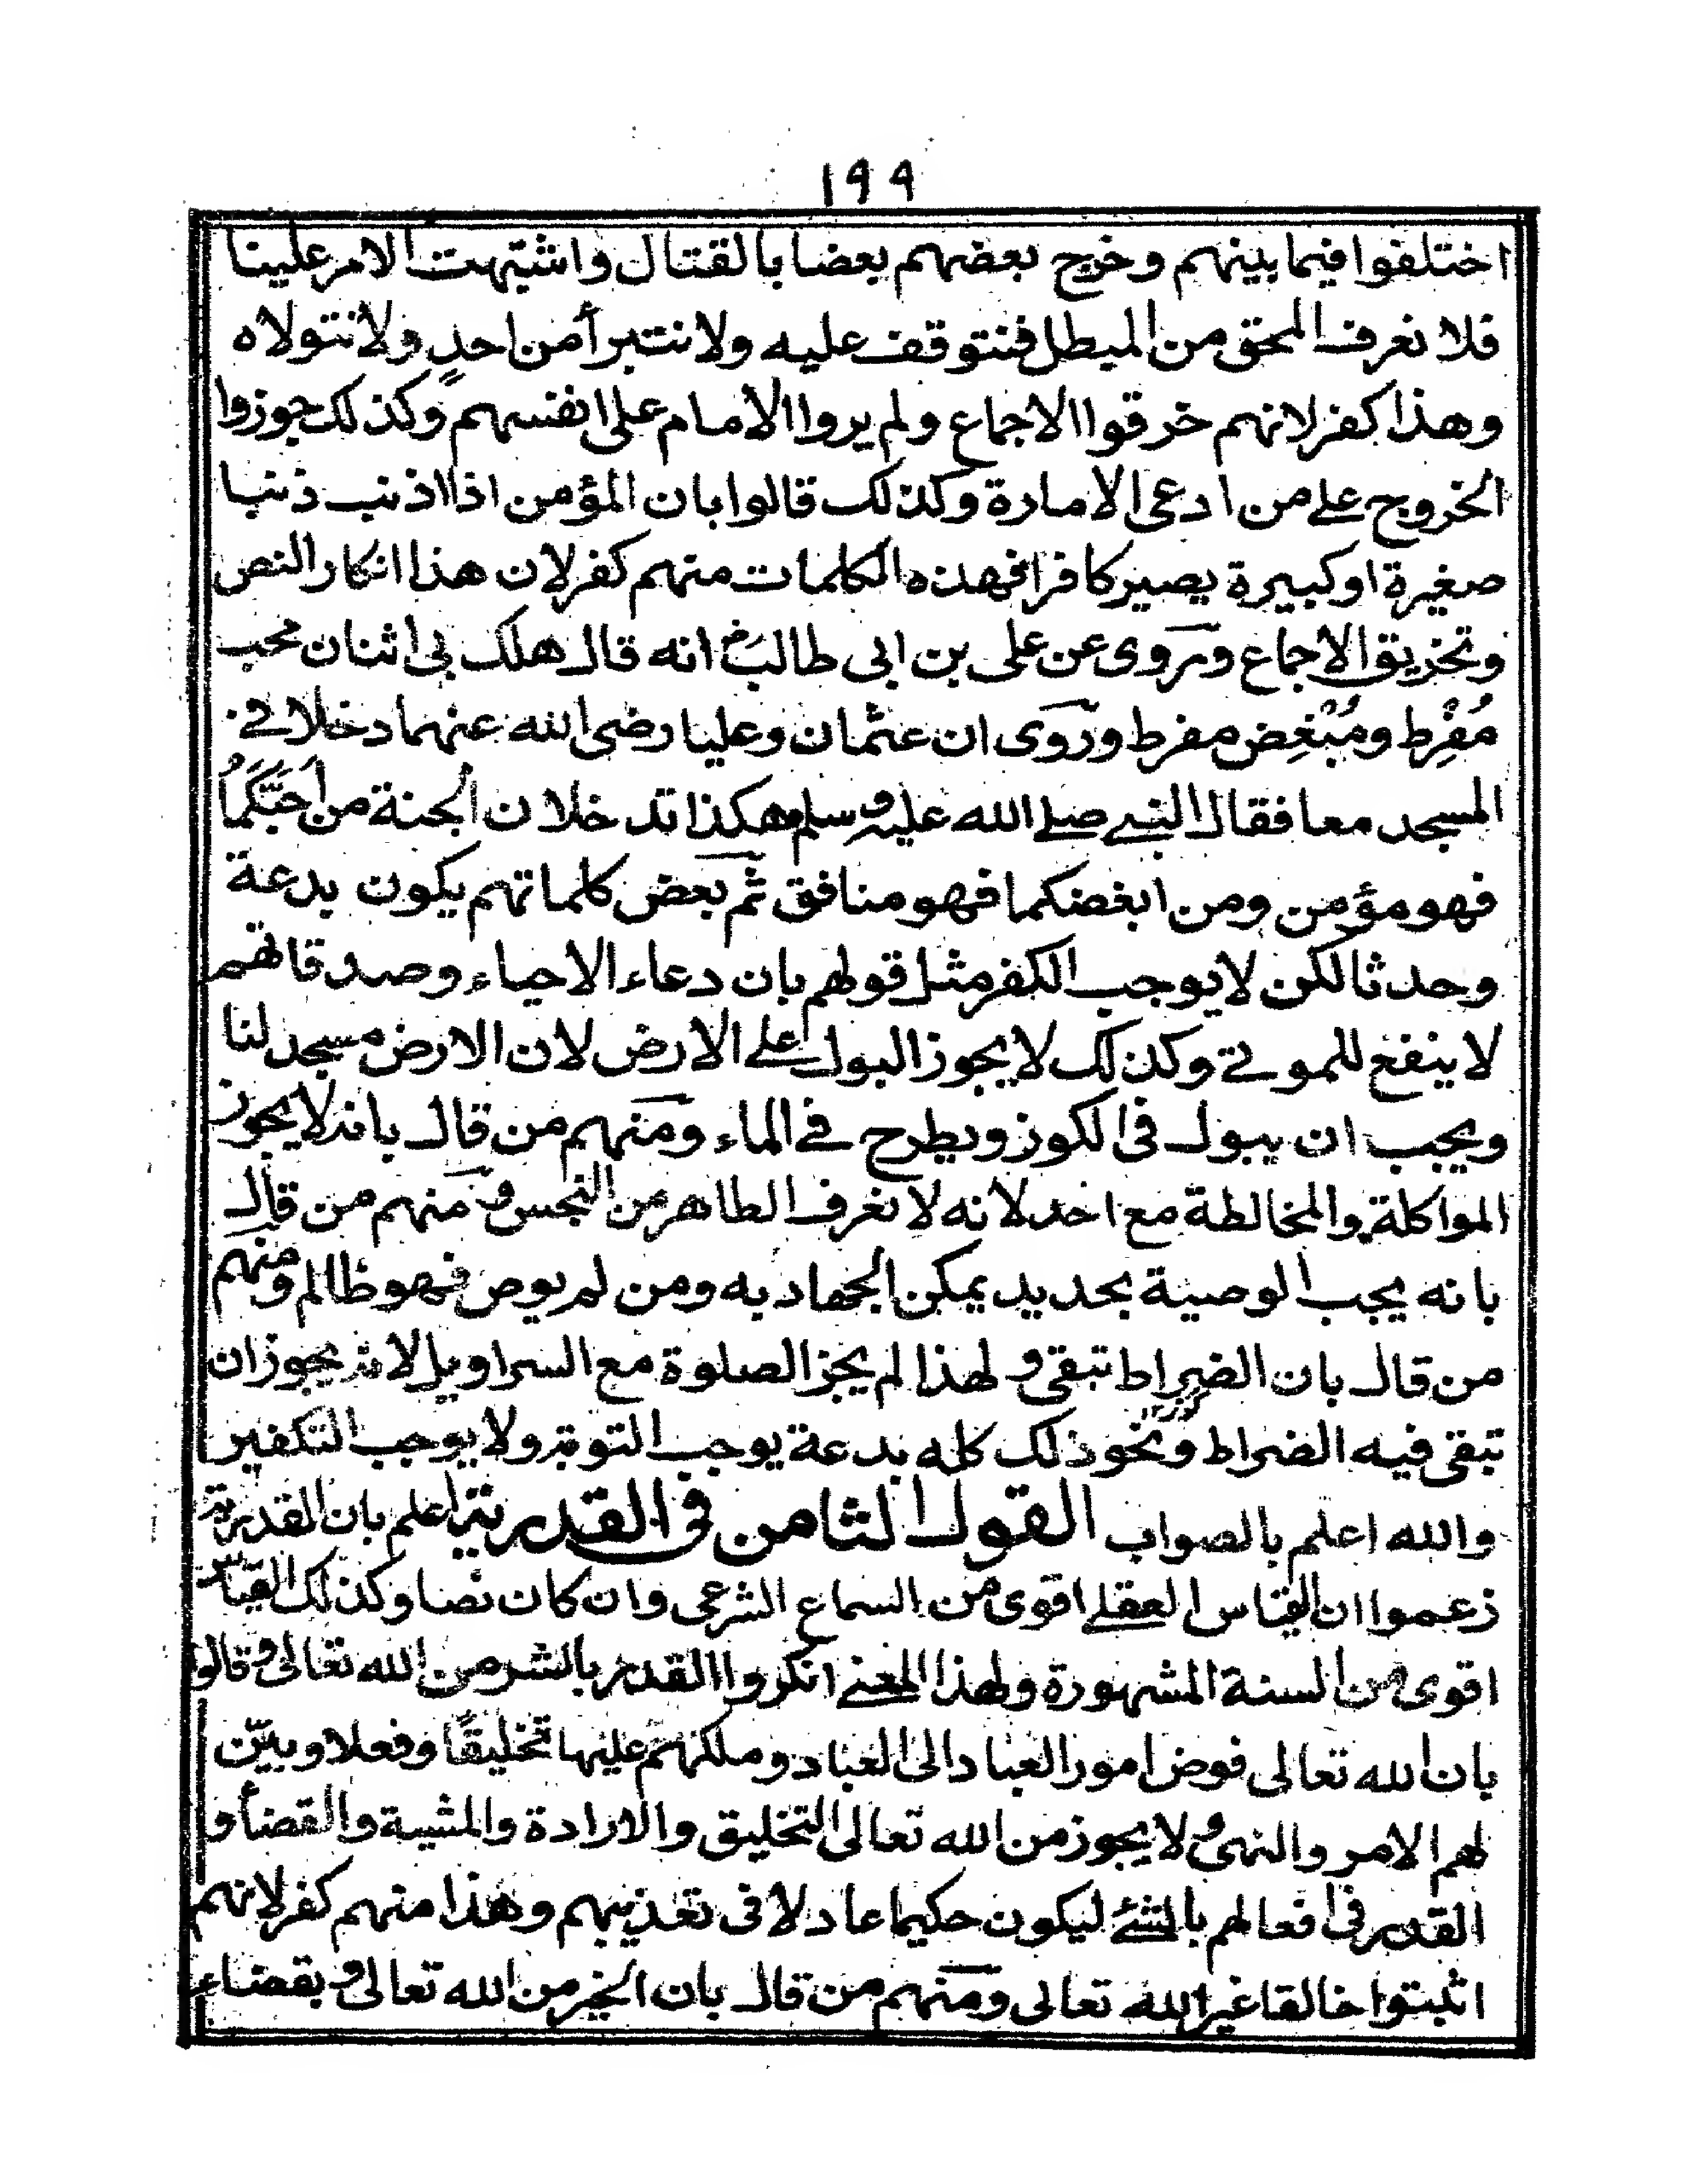 ١٩٩
اختلفوا فيما بينهم وخرج بعضهم بعضا بالقتال واشتبهت الامر علينا
فلا نعرف المحق من المبطل فنتوقف عليه ولا نتبرأ من احدٍ ولا نتولاه
وهذا كفر لانهم خرقوا الاجماع ولم يروا الامام على انفسهم وكذلك جوزوا
الخروج على من ادعى الامارة وكذلك قالوا بان المؤمن اذا اذنب ذنبا
صغيرة او كبيرة يصير كافرا فهذه الكلمات منهم كفر لان هذا انكار النص
وتخريق الاجماع وروى عن على بن ابى طالبؓ انه قال هلك بى اثنان محب
مُفْرِط ومُبْغِض مفرط وروى ان عثمان وعليا رضى الله عنهما دخلا فے
المسجد معا فقال النبے صلے الله عليه وسلم هكذا تدخلان الجنة من اَحَبَّكُمَا
فهو مؤمن ومن ابغضكما فهو منافق ثم بعض كلماتهم يكون بدعة
وحدثا لكن لا يوجب الكفر مثل قولهم بان دعاء الاحياء وصدقاتهم
لا ينفع للموتے وكذلك لا يجوز البول علے الارض لان الارض مسجد لنا
ويجب ان يبول فى الكوز ويطرح فے الماء ومنهم من قال بانه لا يجوز
المواكلة والمخالطة مع احد لانه لا نعرف الطاهر من النجس ومنهم من قال
بانه يجب الوصية بحديد يمكن الجهاد به ومن لم يوص فهو ظالم ومنهم
من قال بان الضراط تبقى ولهذا لم يجز الصلوة مع السراويل لانه يجوز ان
تبقى فيه الضراط ونحو ذلك كله بدعة يوجب التوبة ولا يوجب التكفير
والله اعلم بالصواب القول الثامن فى القدرية اعلم بان القدرية
زعموا ان القياس العقلے اقوى من السماع الشرعى وان كان نصا وكذلك القياس
اقوى من السنة المشهورة ولهذا المعنے انكروا القدر بالشر من الله تعالى وقالوا
بان الله تعالى فوض امور العباد الى العباد وملكهم عليها تخليقًا وفعلا وبيّن
لهم الامر والنهى ولا يجوز من الله تعالى التخليق والارادة والمشية والقضأ و
القدر فى افعالهم بالشئ ليكون حكيما عادلا فى تعذيبهم وهذا منهم كفر لانهم
اثبتوا خالقا غير الله تعالى ومنهم من قال بان الخير من الله تعالى وبقضاء